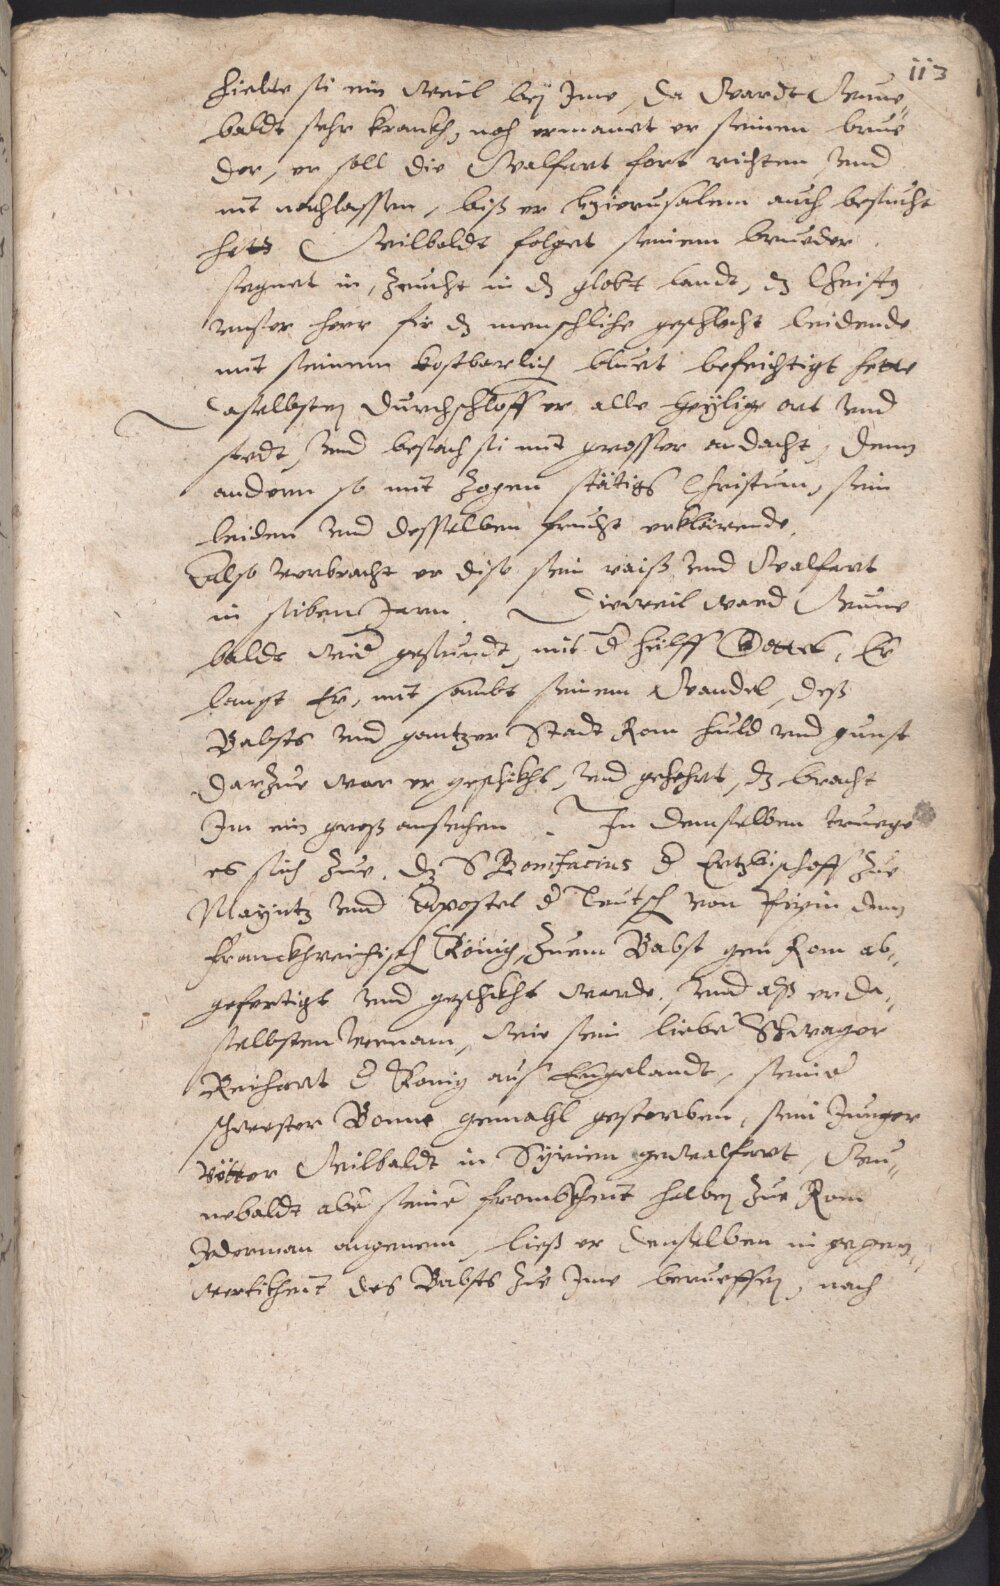 113
hielte sü ein Weil bej Ime, da Wardt Wune„
baldt sehr kranckh, noch ermanet er seinen brue
der, er soll die Walfart fort richten Vnd
nit nachlassen, biß er Hierusalem auch besucht
hett Wilbaldt folget seinem brueder
segnet in, zeucht in dz globt landt, dz Christus
vnser herr fir dz menschliche geschlecht leidende
mit seinem kostbarlich bluet befeichtigt hette
Daselbsten durchschloff er alle heylige ort Vnd
stedt, Vnd besach si mit grosser andacht, denen
andern so mit zogen stätigs Christum, sein
leiden Vnd desselben frucht erklärende.
Also verbracht er dise sein raiß Vnd Walfart
in siben Jarn. Dieweil ward Wune
baldt wider gesundt, mit d hülff Gottes, Er
langt Er, mit sambt seinem Wandel, deß
Babsts Vnd gantzer Stadt Rom huld vnd gunst
Darzue war er geschikht, Vnd gelehrt, dz bracht
Im ein groß ansechen. In demselben truege
es sich zue, dz S Bonifacius d Ertzbischoff zue
Mayntz Vnd Apostel d Teutsch von Pipin dem
Franckhreichisch König, zuem Babst gen Rom ab„
gefertigt Vnd geschikht wardt, Vnd alß er da„
selbsten vernam, wie sein lieber Schwager
Reichart d König aus Engelandt, seiner
schwester Bonne gemahl gestorben, sein Junger
vötter Wilbaldt in Syrien gewalfart, Wu„
nebaldt aber seiner frombkheit halben zue Rom
Jderman angenem, ließ er denselben in gegen„
wertikheit des Babsts zue Ime berueffen, nach